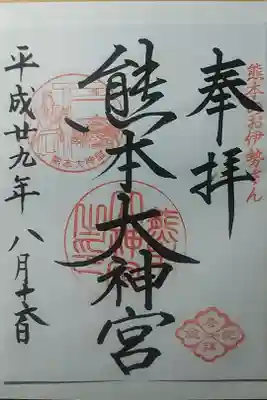 熊本のお伊勢さん
奉拝
熊本大神宮
熊本大神宮
平成廿九年 八月十六日